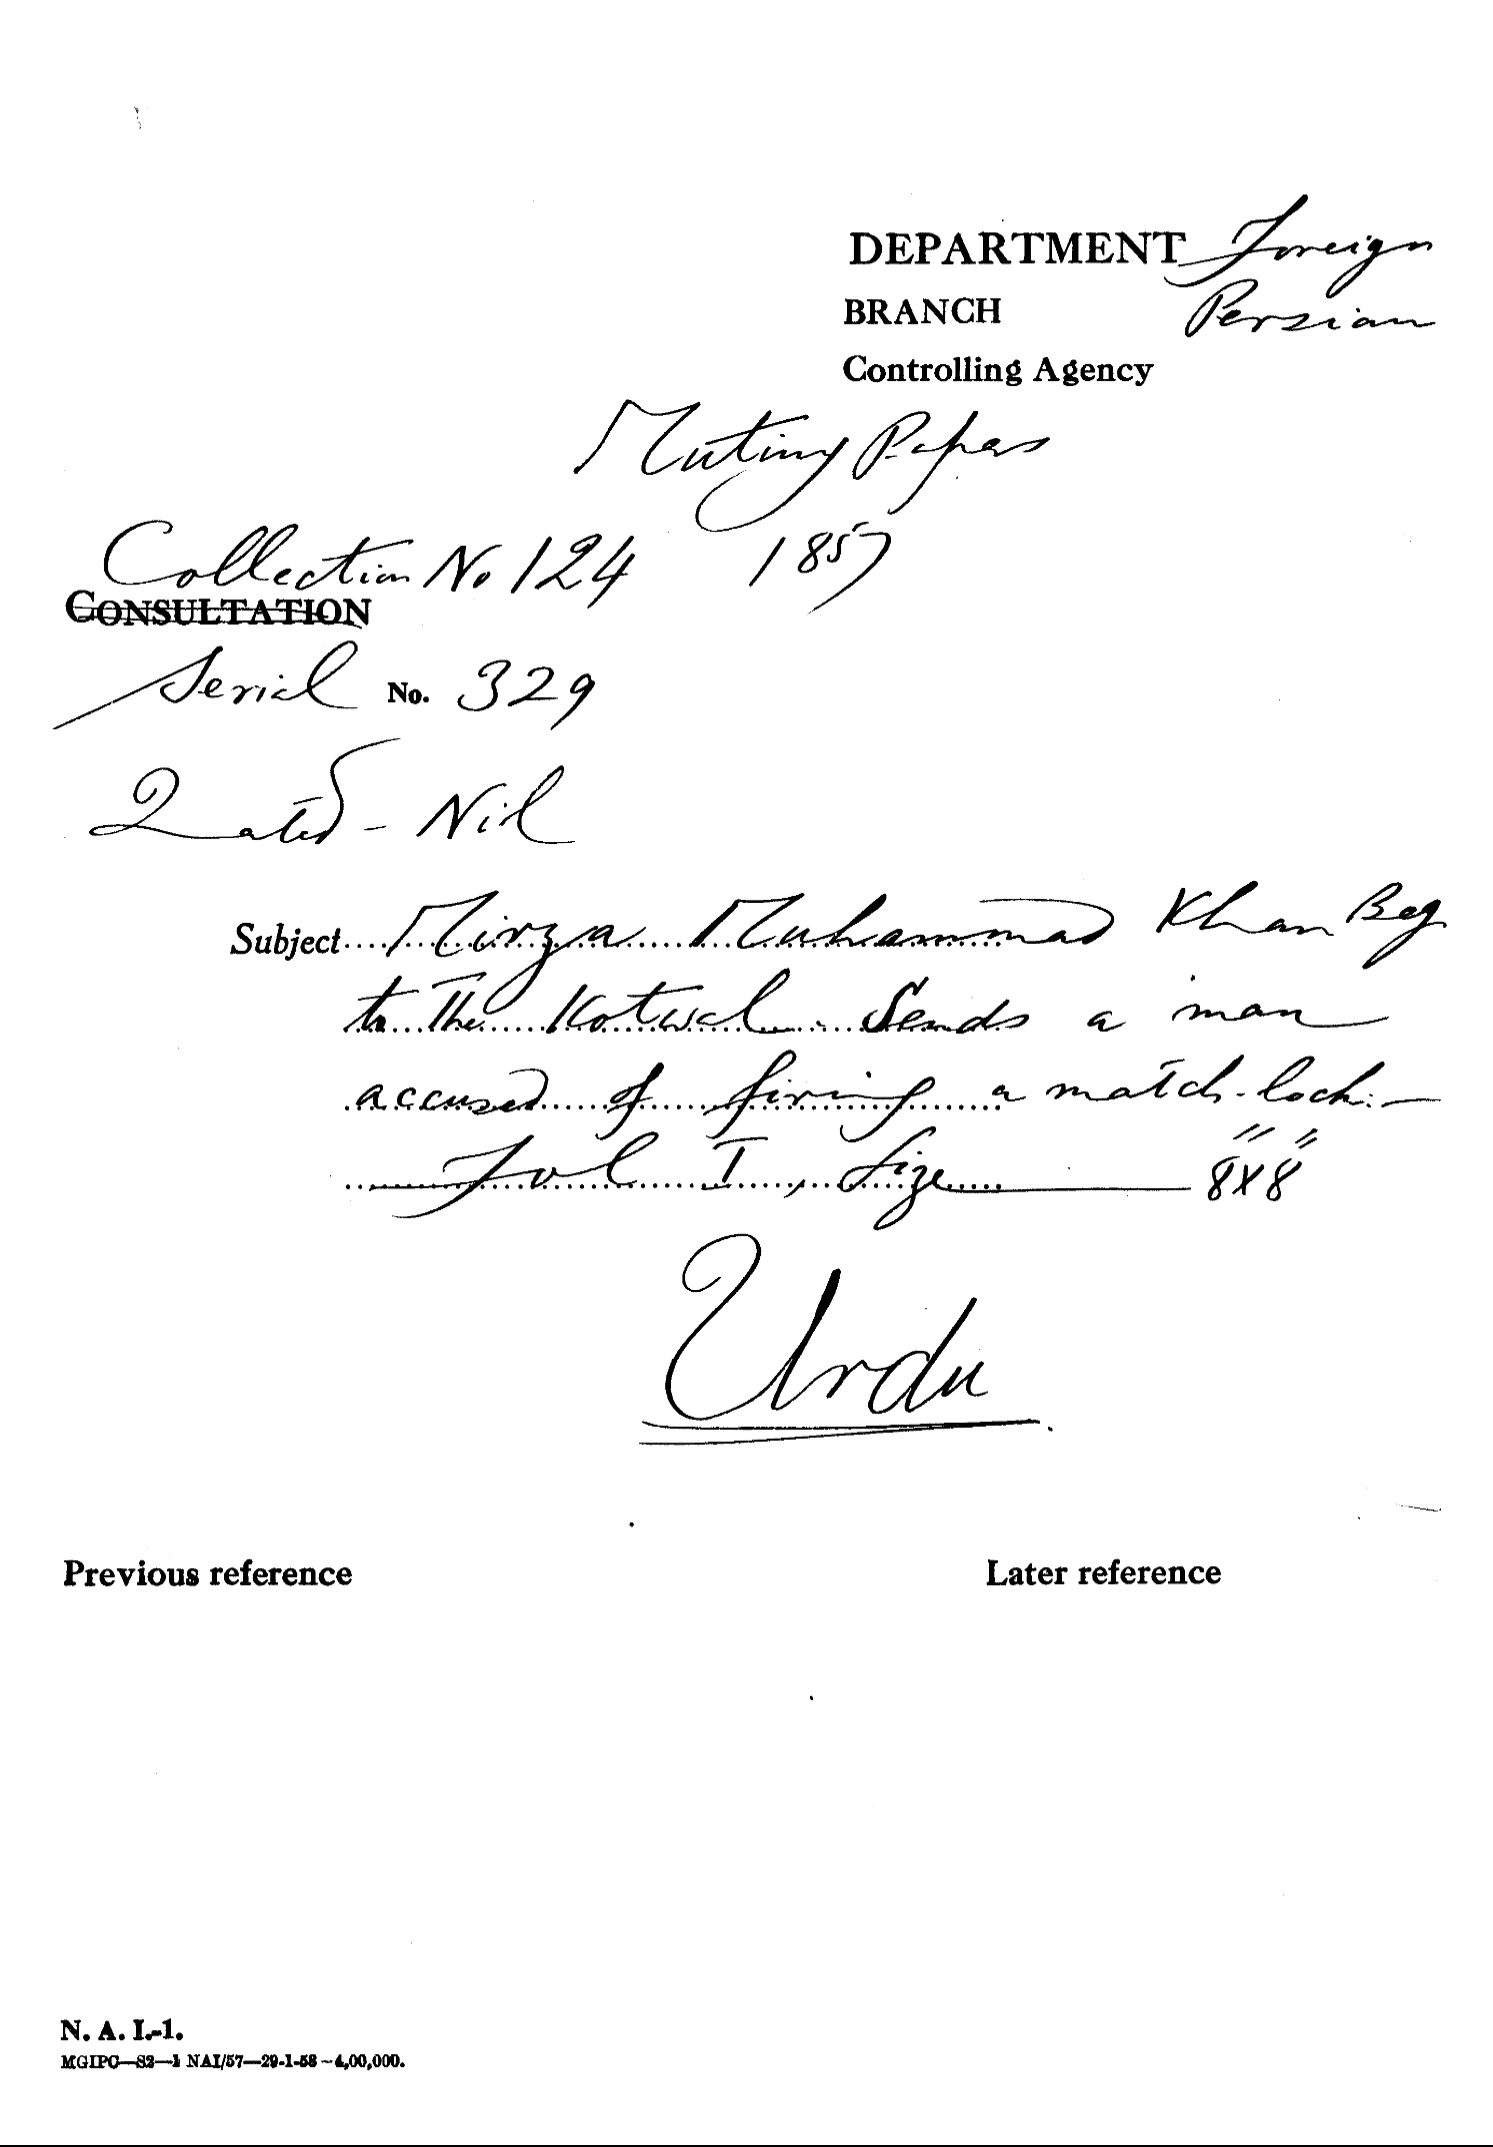 DEPARTMENT Foreign
BRANCH Persian
Controlling Agency
Mutiny Papers
Collection No 124 1857
CONSULTATION
Serial No. 329
Dated - Nil
Subject....Mirza Muhammad Khan Beg
to the Kotwal. Sends a man
accused of firing a match-lock:—
Fol I, Size 8"x8"
Urdu
Previous reference Later reference
N. A. I.-1.
MGIPC—S2—1 NAI/57—29-1-58—4,00,000.